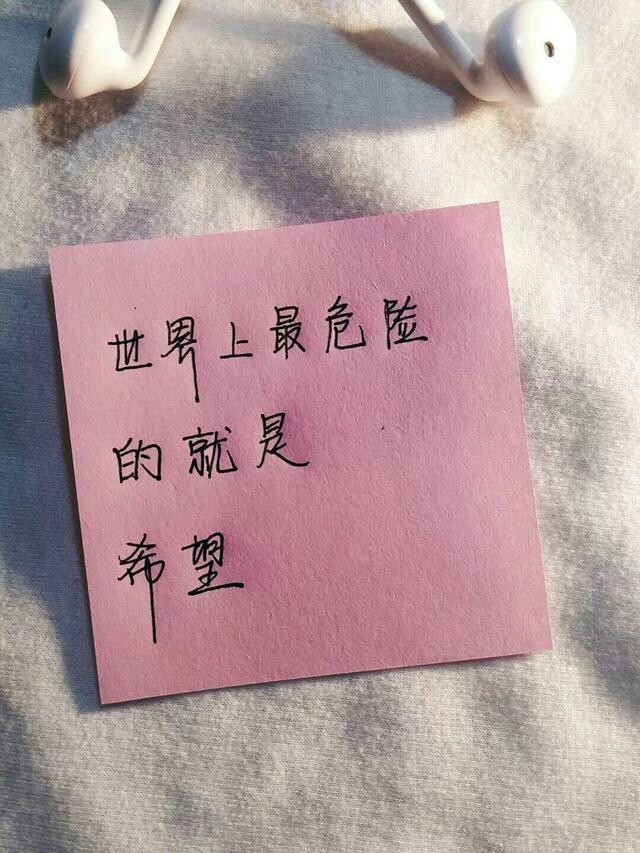 世界上最危险
的就是
希望